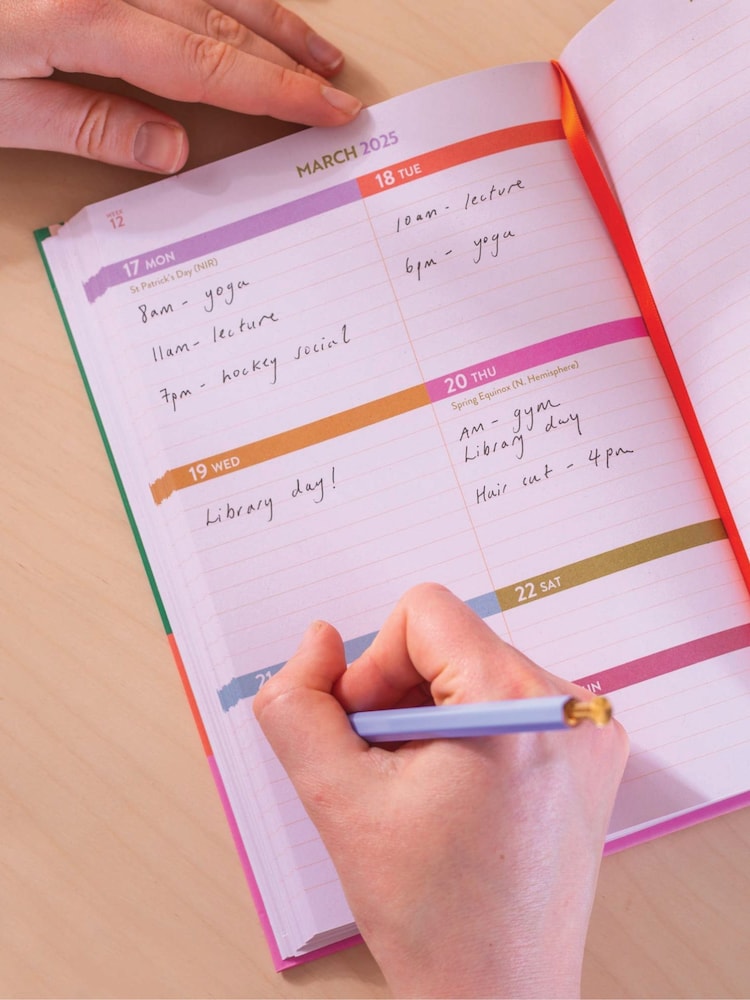 MARCH 2025
WEEK
12
17 MON
St Patrick's Day (NIR)
8am - yoga
11am - lecture
7pm - hockey social
18 TUE
10am - lecture
6pm - yoga
19 WED
Library day!
20 THU
Spring Equinox (N. Hemisphere)
AM - gym
Library day
Hair cut - 4pm
21
22 SAT